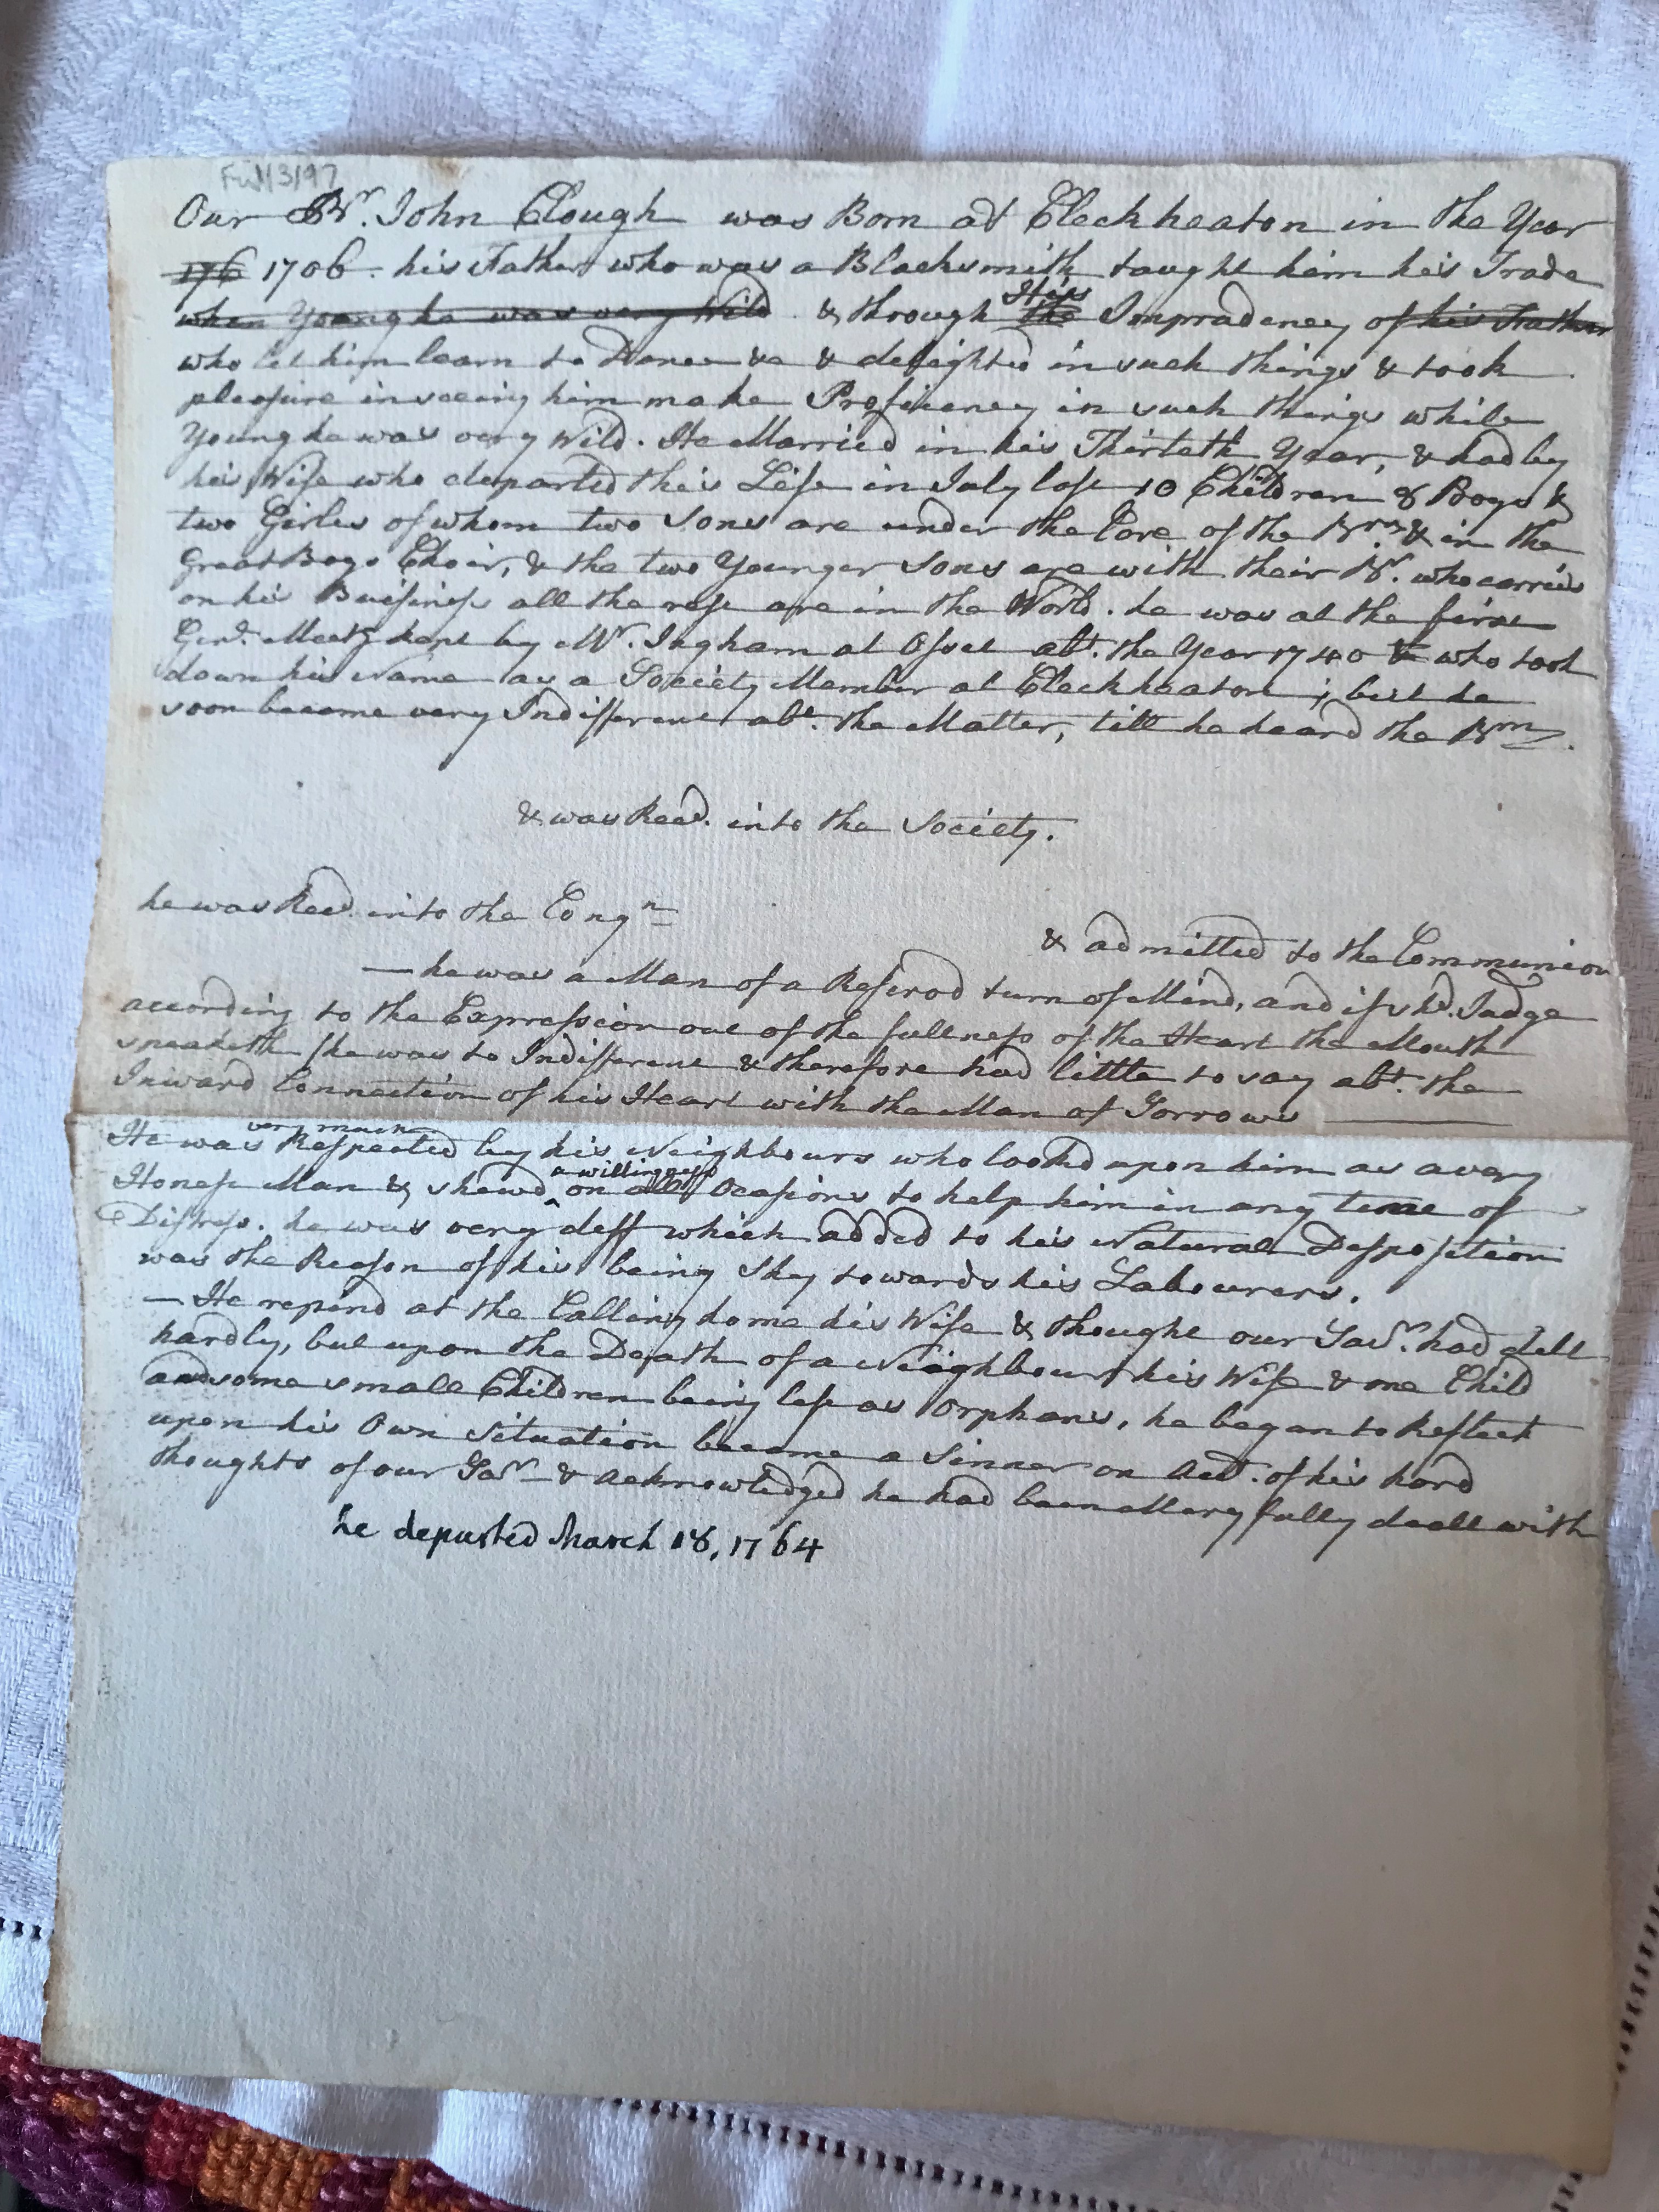 Ful/3/97
Our Br. John Clough was Born at Cleckheaton in the Year
176 1706. his Father who was a Blacksmith taught him his Trade
when Young he was very Wild & through the His Imprudency of his Father
who let him learn to Dance &c & delighted in such things & took
pleasure in seeing him make Proficiency in such things while
Young he was very Wild. He Married in his Thirteth Year, & had by
his Wife who departed this Life in July last 10 Children 8 Boys &
two Girles of whom two sons are under the Care of the Brn. & in the
Great Boys Choir, & the two Younger sons are with their Br. who carries
on his Buisiness all the rest are in the World. he was at the first
Genl. Meetg kept by Mr. Ingham at Osset abt. the Year 1740 & who took
down his Name as a Society Member at Cleckheaton; but he
soon became very Indifferent abt. the Matter, till he heard the Brn.
& was Recd. into the Society.
he was Recd. into the Congn
& admitted to the Communion
— he was a Man of a Reserved turn of Mind, and if shd. Judge
according to the Expression out of the fullness of the Heart the Mouth
speaketh he was to Indifferent & therefore had little to say abt. the
Inward Connection of his Heart with the Man of Sorrows
He was very much Respected by his Neighbours who looked upon him as a very
Honest Man & shewd a willingness on all Ocasions to help him in any time of
Distress. he was very deff which added to his Natural Desposition
was the Reason of his being Shy towards his Labourers.
— He repind at the Calling home his Wife & thought our Savr. had delt
hardly, but upon the Death of a Neighbour his Wife & one Child
and some small Children being left as Orphans, he began to Reflect
upon his Own Situation became a Sinner on Acct. of his hard
thoughts of our Savr & acknowledged he had been Mercyfully dealt with
he departed March 18, 1764